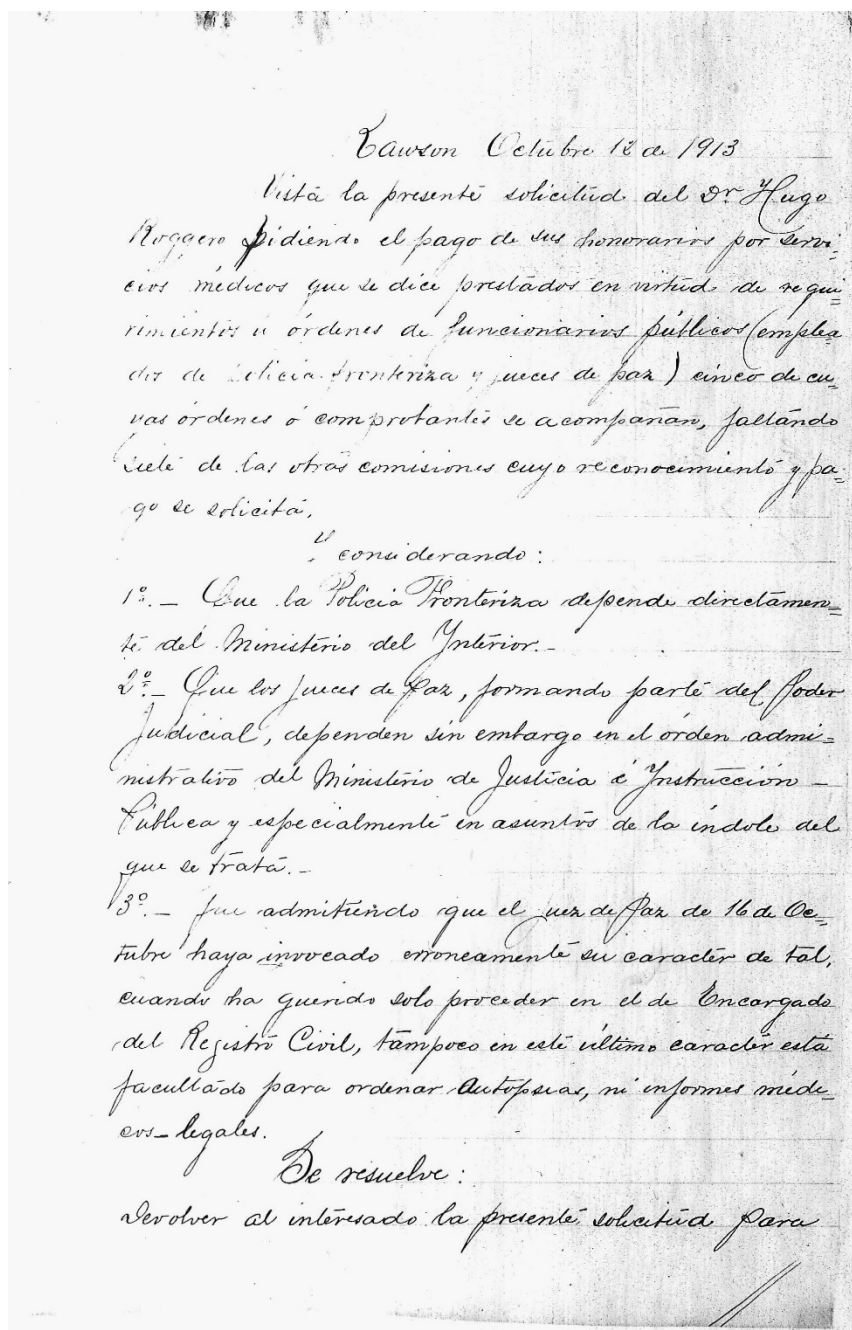 Rawson Octubre 12 de 1913
Vista la presente solicitud del Dr Hugo
Roggero pidiendo el pago de sus honorarios por servi-
cios médicos que se dice prestados en virtud de reque-
rimientos u órdenes de funcionarios públicos (emplea
dos de Policia fronteriza y jueces de paz) cinco de cu-
yas órdenes ó comprobantes se acompañan, faltando
siete de las otras comisiones cuyo reconocimiento y pa-
go se solicita,
y considerando:
1º.- Que la Policia Fronteriza depende directamen-
te del Ministerio del Ynterior.-
2º.- Que los jueces de Paz, formando parte del Poder
Judicial, dependen sin embargo en el órden admi-
nistrativo del Ministerio de Justicia é Ynstrucción -
Pública y especialmente en asuntos de la indole del
que se trata.-
3º.- Que admitiendo que el juez de Paz de 16 de Oc-
tubre haya invocado erroneamente su caracter de tal,
cuando ha querido solo proceder en el de Encargado
del Registro Civil, tampoco en este último caracter está
facultado para ordenar autopsias, ni informes médi-
cos-legales.
Se resuelve:
Devolver al interesado la presente solicitud para